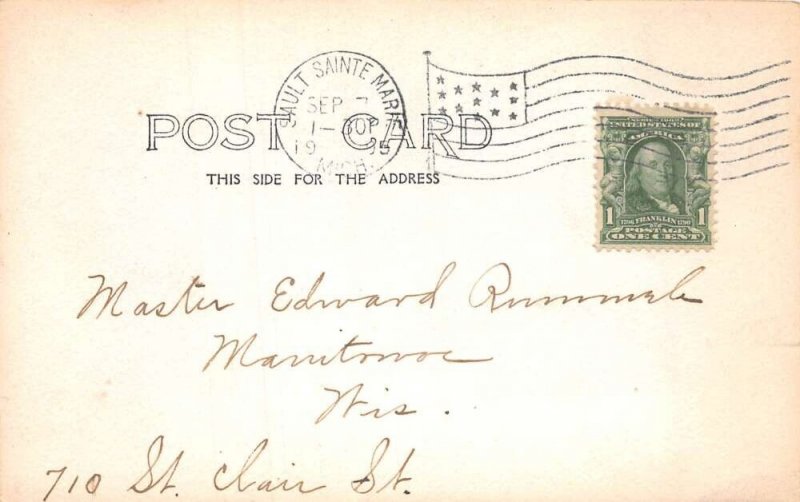 SAULT SAINTE MARIE
SEP 7
1-30P
1905
MICH.
POST CARD
THIS SIDE FOR THE ADDRESS
SERIES 1902
UNITED STATES OF
AMERICA
1 1706 FRANKLIN 1790 1
POSTAGE
ONE CENT
Master Edward Rummele
Manitowoc
Wis.
710 St. Clair St.